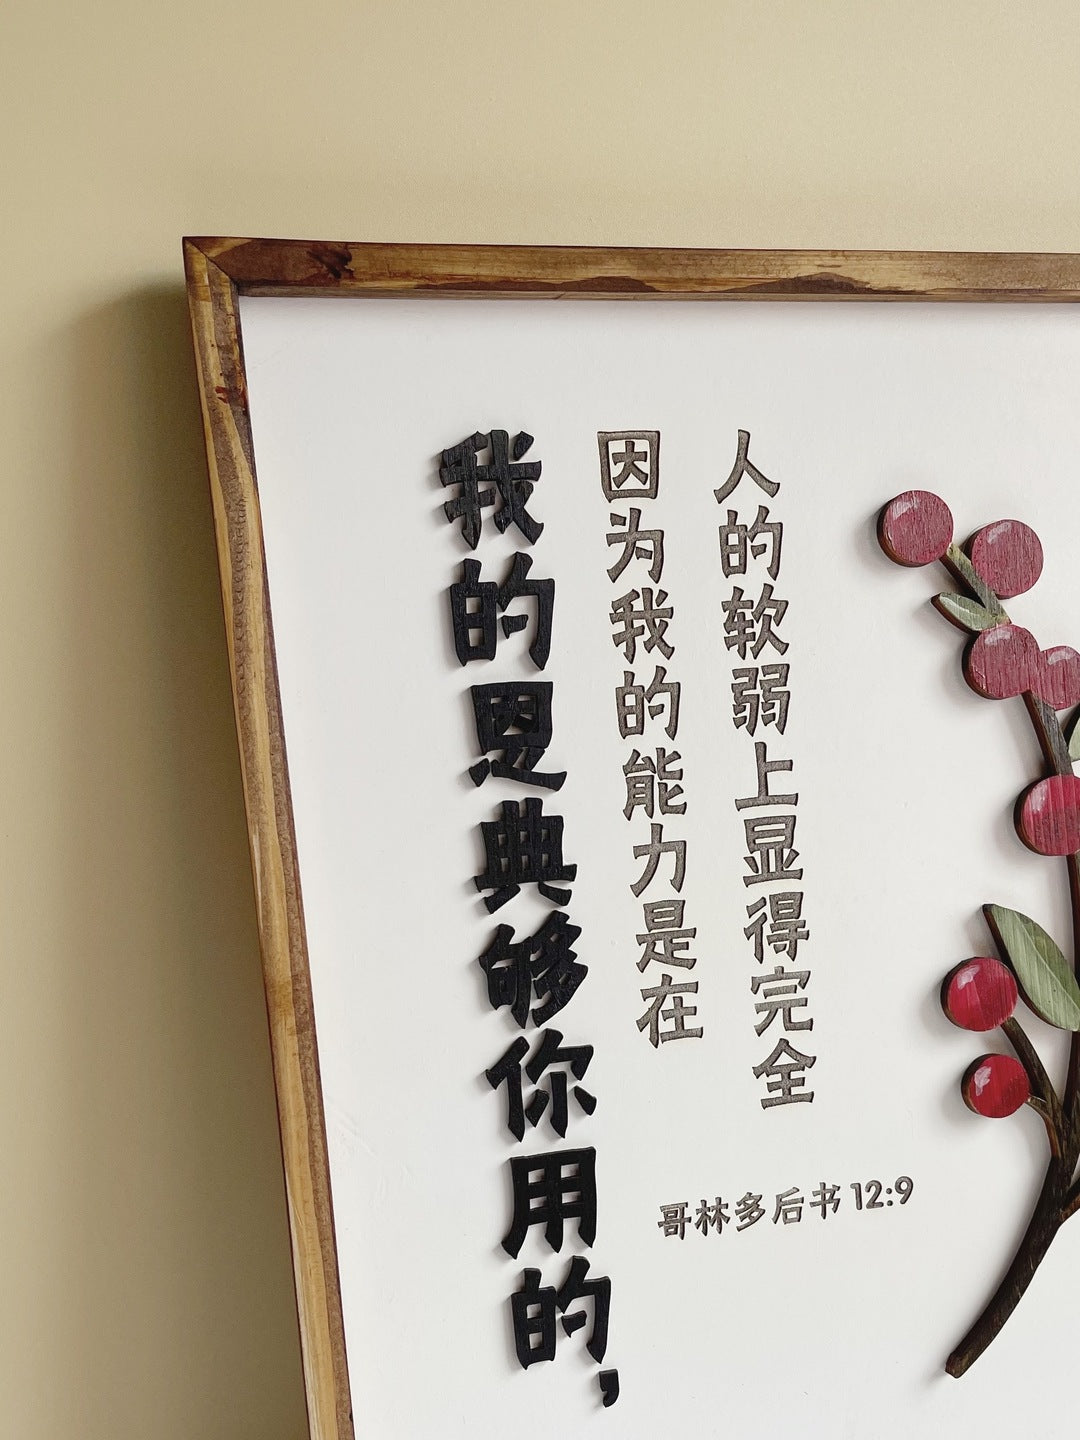 我的恩典够你用的，
因为我的能力是在
人的软弱上显得完全
哥林多后书 12:9